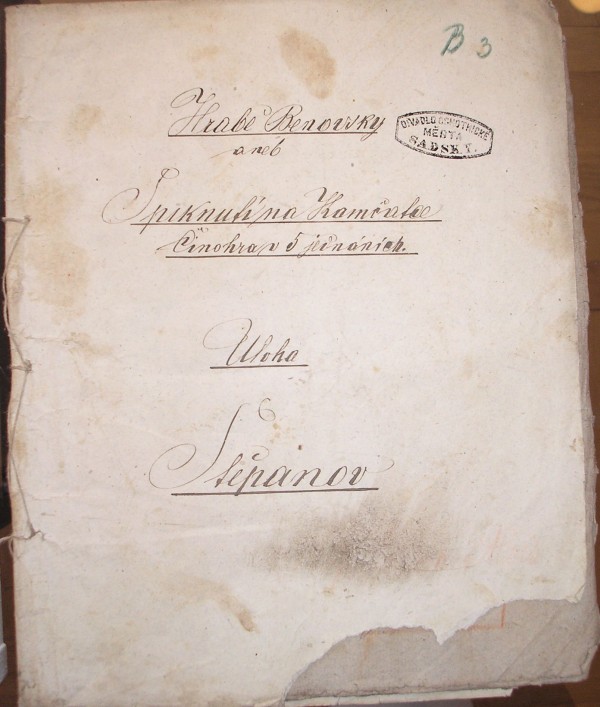 B 3
Hrabě Benovsky
aneb
DIVADLO OCHOTNICKÉ
MĚSTA
SADSKÝ.
Spiknutí na Kamčatce
Činohra v 5 jednáních.
Uloha
Štěpanov